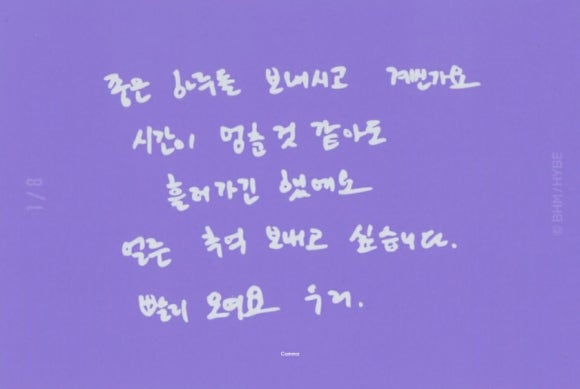 좋은 하루들 보내시고 계신가요
시간이 멈춘것 같아도
흘러가긴 했네요
얼른 추억 보내고 싶습니다.
빨리 모여요 우리.
1/8
© BHM/HYBE
Comma